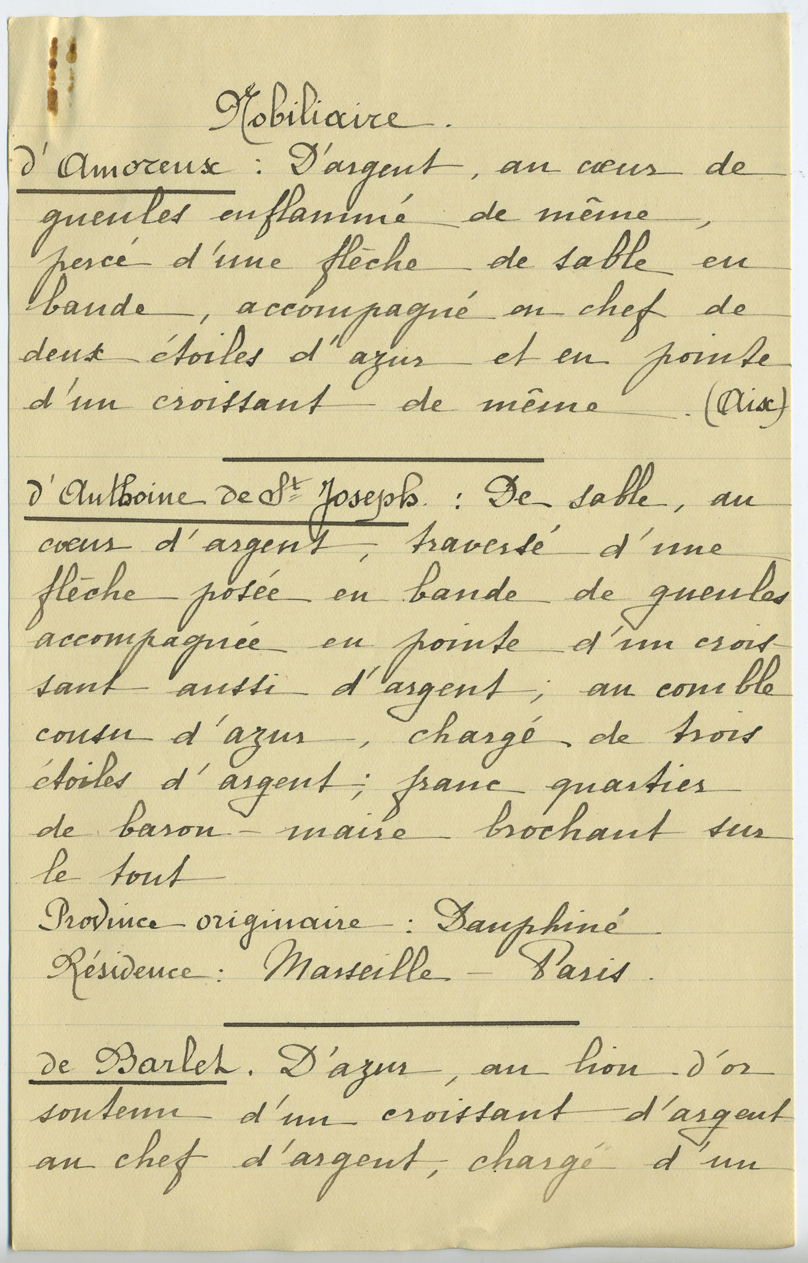 Nobiliaire.
d'Amoreux : D'argent, au cœur de
gueules enflammé de même,
percé d'une flèche de sable en
bande, accompagné en chef de
deux étoiles d'azur et en pointe
d'un croissant de même. (Aix)
d'Anthoine de St Joseph. : De sable, au
cœur d'argent, traversé d'une
flèche posée en bande de gueules
accompagnée en pointe d'un crois-
sant aussi d'argent; au comble
cousu d'azur, chargé de trois
étoiles d'argent; franc quartier
de baron-maire brochant sur
le tout
Province originaire : Dauphiné.
Résidence : Marseille - Paris.
de Barlet. D'azur, au lion d'or
soutenu d'un croissant d'argent
au chef d'argent, chargé d'un